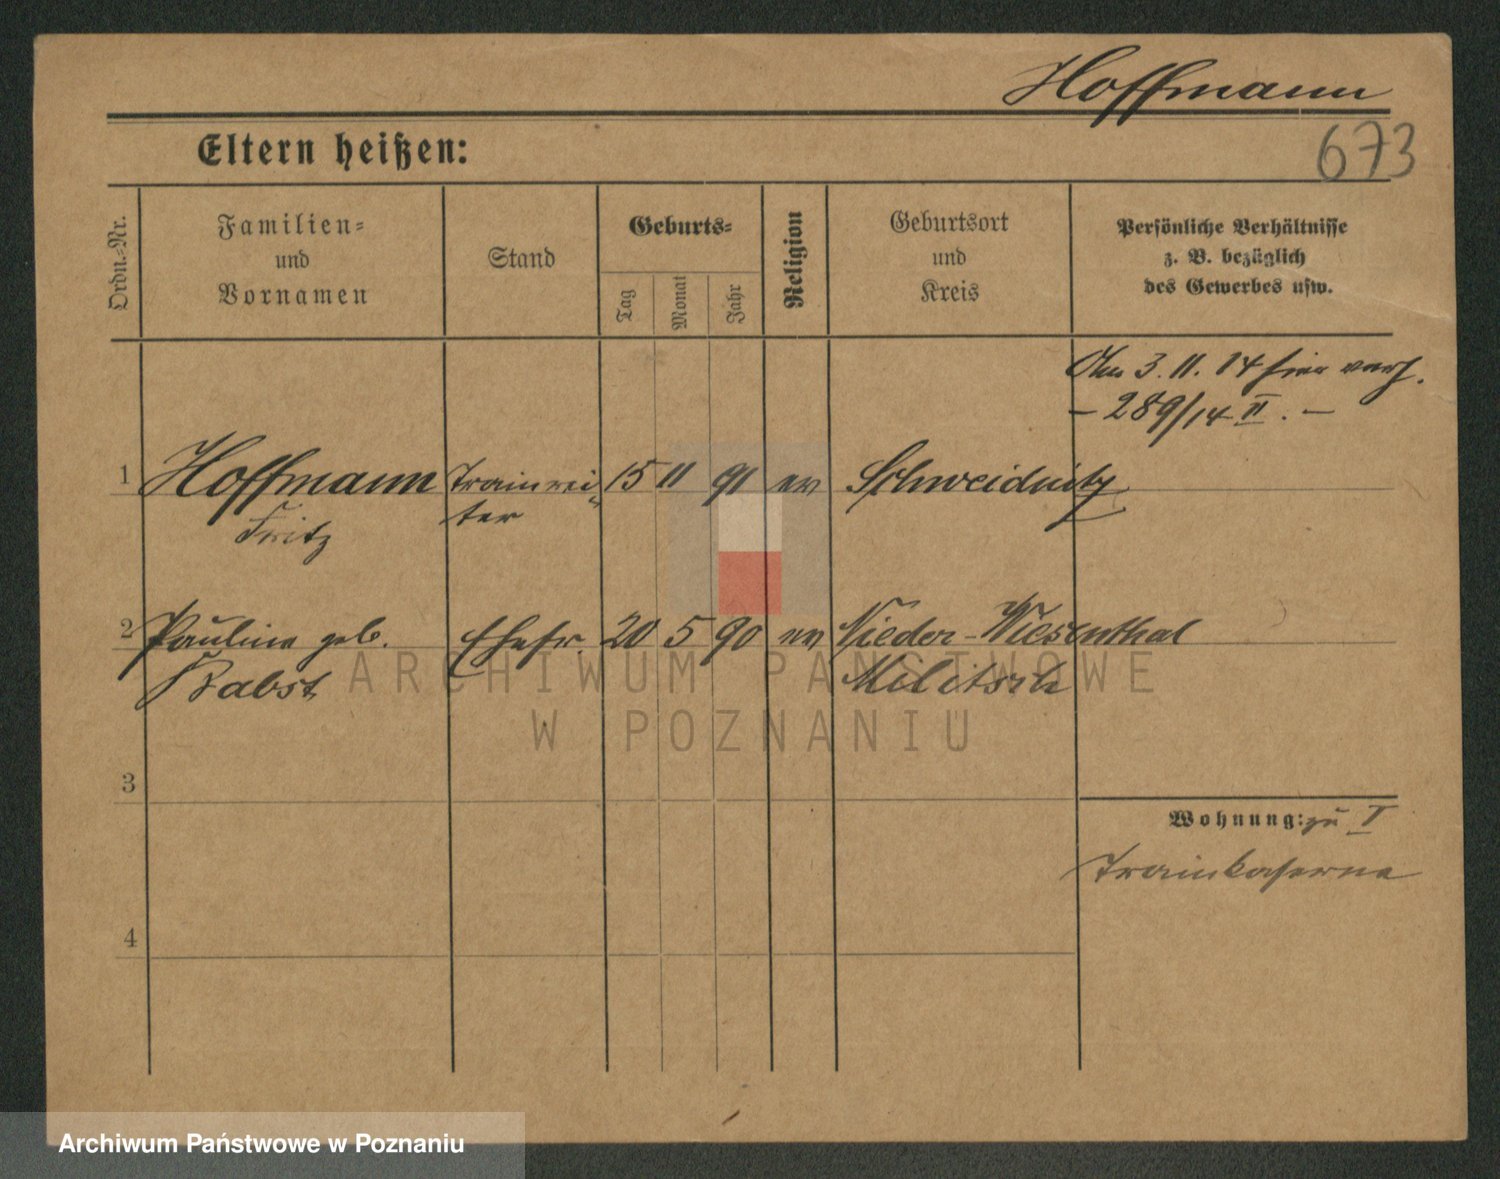 Hoffmann
673
Eltern heißen:
Ordn.=Nr.
Familien=
und
Vornamen
Stand
Geburts=
Tag
Monat
Jahr
Religion
Geburtsort
und
Kreis
Persönliche Verhältnisse
z. B. bezüglich
des Gewerbes usw.
Am 3. 11. 14 hier verh.
- 289/14 II. -
1 Hoffmann Trainrei= 15 11 91 ev Schweidnitz
Fritz ter
2 Pauline geb. Ehefr. 20 5 90 ev Nieder-Wiesenthal
Babst Militsch
3
Wohnung: zu I
Trainkaserne
4
ARCHIWUM PAŃSTWOWE
W POZNANIU
Archiwum Państwowe w Poznaniu